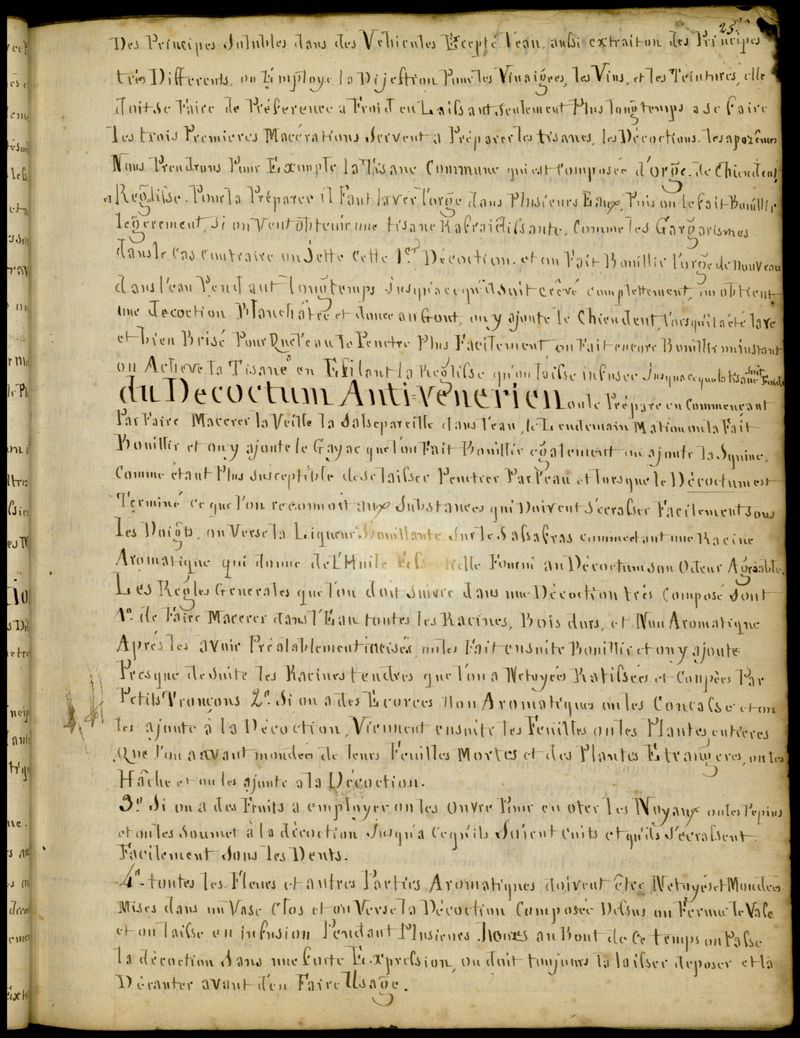 25.
Des Principes Solubles dans des Vehicules Excepté l'eau, aussi extrait on des Principes
très Differents, on Employe la Dijestion Pour les Vinaigres, les Vins, et les Teintures, elle
doit se Faire de Préference a Froid en Laissant seulement Plus longtemps a se faire
les trois Premieres Macérations Servent a Préparer les tisanes, les Décoctions. les apozêmes
Nous Prendrons Pour Exemple la Tisane Commune qui est Composée d'orge. de Chiendent
et Reglisse. Pour la Préparer il Faut laver l'orge dans Plusieurs Eaux, Puis on le fait Bouillir
legerement, Si on Veut obtenir une tisane Rafraichissante, Comme les Gargarismes
dans le Cas Contraire on Jette Cette 1ere Décoction. et on Fait Bouillir l'orge de nouveau
dans l'eau Pendant longtemps Jusqu'a ce qu'il Soit crévé complettement, on obtient
une decoction Blanchâtre et douce au Gout, on y ajoute le Chiendent, lorsqu'il a été lavé
et bien Brisé Pour que l'eau le Penetre Plus Facilement on Fait encore Bouillir un instant
on Acheve la Tisane en Effilant la Reglisse qu'on laisse infuser Jusqu'a ce que la tisane soit Froide
du Decoctum Anti-Venerien on le Prépare en Commencant
Par Faire Macerer la Veille la Salsepareille dans l'eau, le Lendemain Matin on la Fait
Bouillir et on y ajoute le Gayac que l'on Fait Bouillir également on ajoute la Squine,
Comme étant Plus Susceptible de se laisser Penetrer Par l'eau et lorsque le Décoctum est
Terminé Ce que l'on reconnoit aux Substances qui Doivent S'écraser Facilement sous
les Doigts, on Verse la Liqueur Bouillante Sur le Sassafras comme étant une Racine
Aromatique qui donne de L'Huile Elle Fourni au Décoctum son Odeur Agréable.
Les Régles Generales que l'on doit Suivre dans une Décoction très Composé Sont
1º. de Faire Macerer dans l'Eau toutes les Racines, Bois durs, et Non Aromatique
Après les avoir Préalablement incisés, on les Fait ensuite Bouillir et on y ajoute
Presque de Suite les Racines tendres que l'on a Netoyées Ratissées et Coupées Par
Petits Troncons 2º. Si on a des Ecorces Non Aromatiques on les Concasse et on
les ajoute à la Décoction, Viennent ensuite les Feuilles on les Plantes entieres
Que l'on a avant mondées de leurs Feuilles Mortes et des Plantes Etrangeres, on les
Hâche et on les ajoute a la Décoction.
3º. Si on a des Fruits a employer on les Ouvre Pour en oter les Noyaux on les Pepins
et on les Soumet à la décoction Jusqu'a Ce qu'ils Soient cuits et qu'ils S'ecrassent
Facilement Sous les Dents.
4º. toutes les Fleurs et autres Parties Aromatiques doivent être Netoyés et Mondées
Mises dans un Vase Clos et on Verse la Décoction Composée Dessus on Ferme le Vase
et on laisse en infusion Pendant Plusieurs Heures au Bout de Ce temps on Passe
la décoction Dans une forte Expression, on doit toujours la laisser deposer et la
Décanter avant d'en Faire Usage.